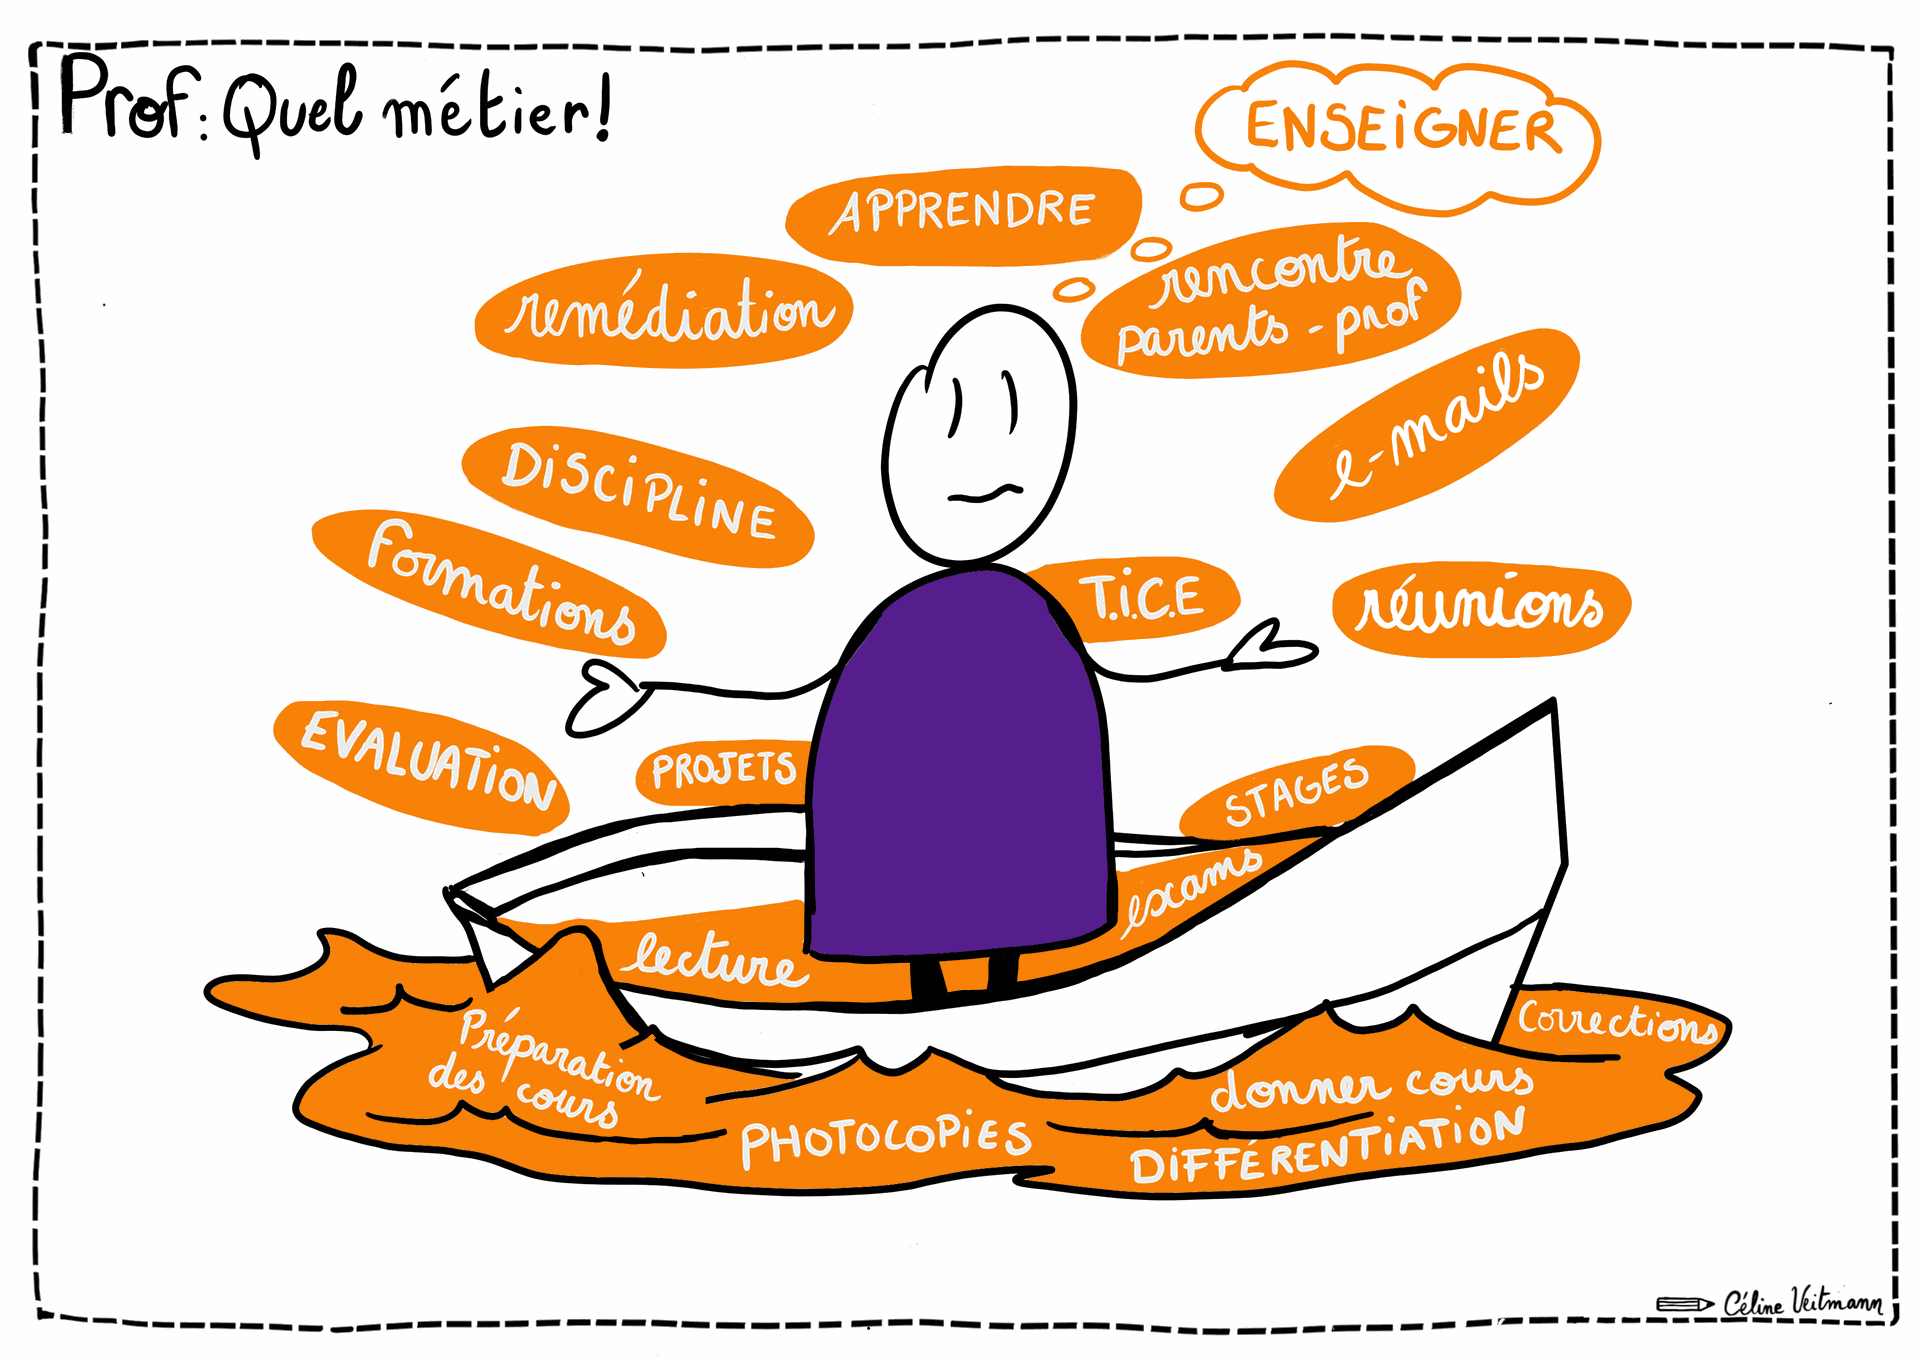 Prof: Quel métier!
ENSEiGNER
APPRENDRE
remédiation
rencontre
parents - prof
e-mails
DiSCiPLiNE
formations
T.i.C.E
réunions
EVALUATiON
PROJETS
STAGES
exams
lecture
Préparation
des cours
Corrections
donner cours
PHOTOCOPiES
DiFFÉRENTiATiON
Céline Veitmann